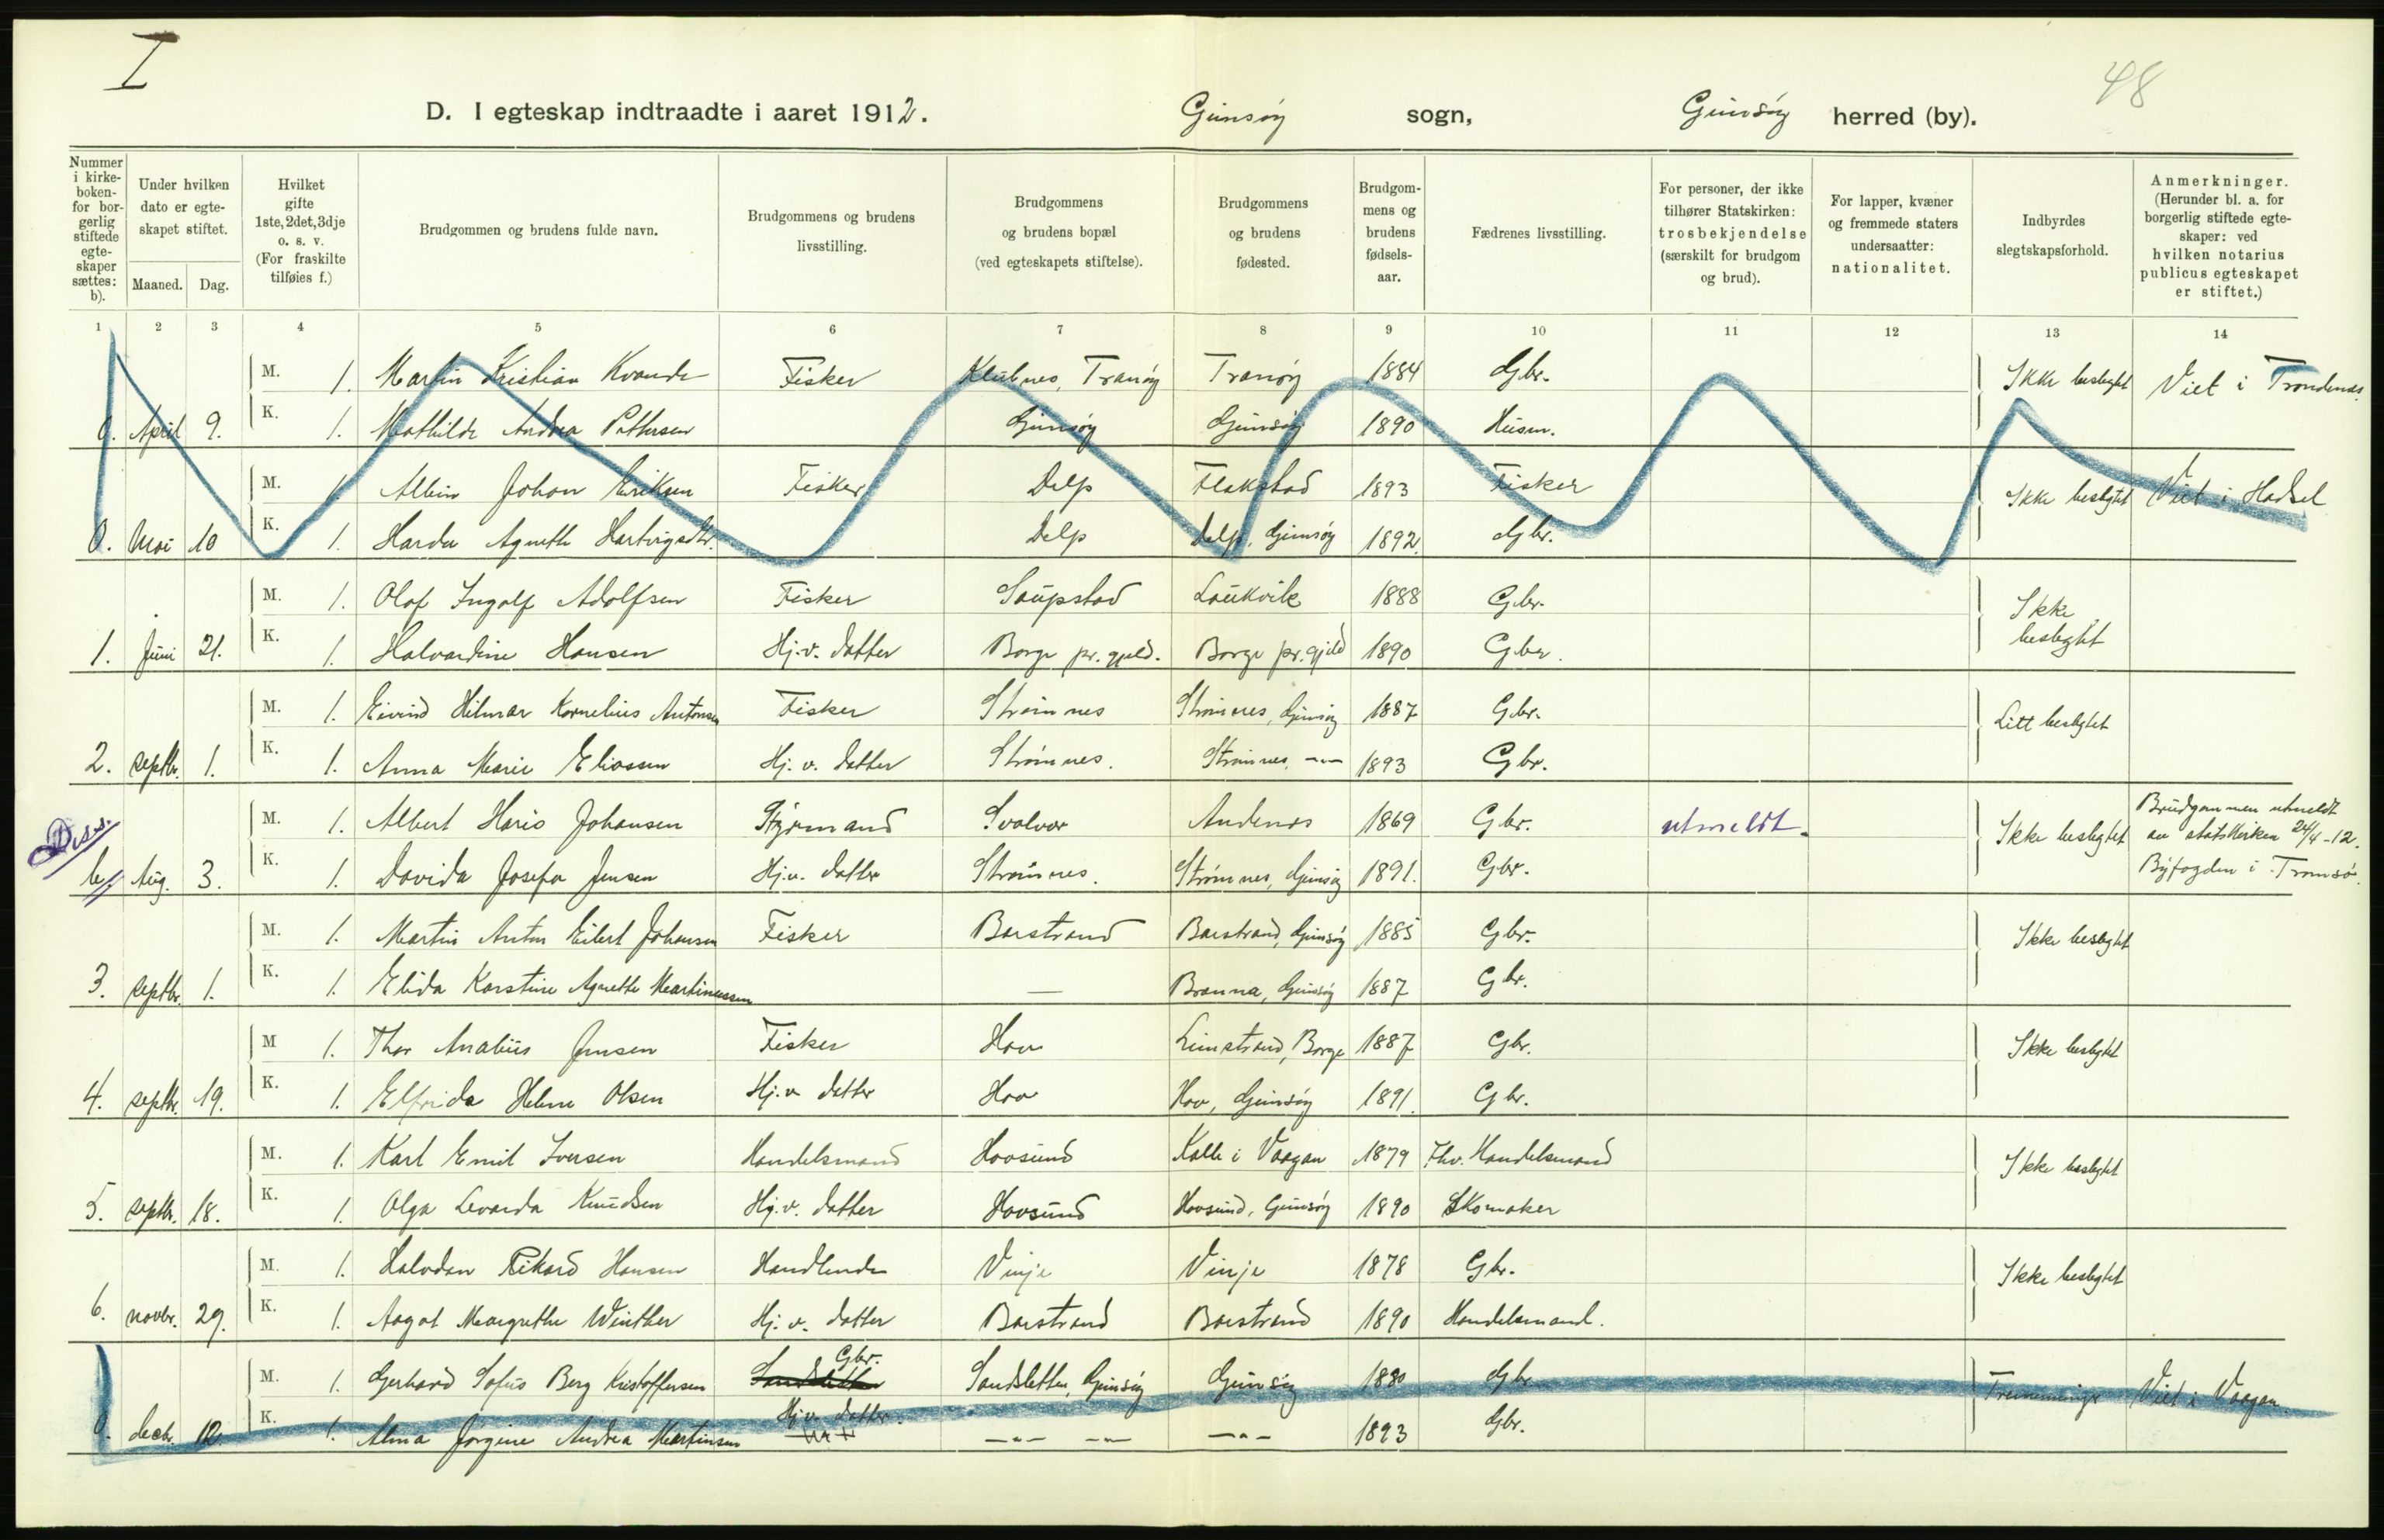 I
48
D. I egteskap indtraadte i aaret 1912. Gimsøy sogn, Gimsøy herred (by).
Nummer i kirkeboken- for borgerlig stiftede egteskaper sættes: b).
Under hvilken dato er egteskapet stiftet.
Maaned. Dag.
Hvilket gifte 1ste, 2det, 3dje o. s. v. (For fraskilte tilføies f.)
Brudgommen og brudens fulde navn.
Brudgommens og brudens livsstilling.
Brudgommens og brudens bopæl (ved egteskapets stiftelse).
Brudgommens og brudens fødested.
Brudgommens og brudens fødselsaar.
Fædrenes livsstilling.
For personer, der ikke tilhører Statskirken: trosbekjendelse (særskilt for brudgom og brud).
For lapper, kvæner og fremmede staters undersaatter: nationalitet.
Indbyrdes slegtskapsforhold.
Anmerkninger. (Herunder bl. a. for borgerlig stiftede egteskaper: ved hvilken notarius publicus egteskapet er stiftet.)
1 2 3 4 5 6 7 8 9 10 11 12 13 14
M. 1. Martin Kristian Kvande Fisker Klubnes, Tranøy Tranøy 1884 Gbr. Ikke beslegtet Viet i Trondenes.
0. April 9. K. 1. Mathilde Andrea Pettersen Gimsøy Gimsøy 1890 Husm.
M. 1. Albin Johan Eriksen Fisker Delp Flakstad 1893 Fisker Ikke beslegtet Viet i Hadsel
0. Mai 10 K. 1. Harda Agnethe Hartvigsdtr. Delp Delp, Gimsøy 1892. Gbr.
M. 1. Olaf Ingolf Adolfsen Fisker Saupstad Laukvik 1888 Gbr. Ikke beslegtet
1. Juni 21. K. 1. Halvardine Hansen Hj.v. datter Borge pr.gjeld. Borge pr.gjeld 1890 Gbr.
M. 1. Eivind Hilmar Kornelius Antonsen Fisker Strømnes Strømnes, Gimsøy 1887 Gbr. Litt beslegtet
2. septbr. 1. K. 1. Anna Marie Eliassen Hj. v. datter Strømnes. Strømnes, -"- 1893 Gbr.
Diss.
M. 1. Albert Haris Johansen Styrmand Svolvær Andenes 1869 Gbr. utmeldt. Ikke beslegtet Brudgommen utmeldt av statskirken 24/4-12. Byfogden i Tromsø.
b/. Aug. 3. K. 1. Davida Josefa Jensen Hj.v. datter Strømnes. Strømnes, Gimsøy 1891. Gbr.
M. 1. Martin Anton Eilert Johansen Fisker Barstrand Barstrand, Gimsøy 1885 Gbr. Ikke beslegtet
3. septbr. 1. K. 1. Elida Karstine Agnethe Martinussen — Brenna, Gimsøy 1887 Gbr.
M 1. Thor Analius Jensen Fisker Hov Limstrand, Borge 1887 Gbr. Ikke beslegtet
4. septbr. 19. K. 1. Elfrida Helene Olsen Hj.v datter Hov Hov, Gimsøy 1891. Gbr.
M. 1. Karl Emil Iversen Handelsmand Hovsund Kalle i Vaagan 1879 Fhv. Handelsmand Ikke beslegtet
5. septbr. 18. K. 1. Olga Levarda Knudsen Hj.v. datter Hovsund Hovsund, Gimsøy 1890 Skomaker
M. 1. Halvdan Rikard Hansen Handlende Vinje Vinje 1878 Gbr. Ikke beslegtet
6. novbr. 29. K. 1. Aagot Margrethe Winther Hj. v. datter Barstrand Barstrand 1890 Handelsmand.
M. 1. Gerhard Sofus Berg Kristoffersen Gbr. Sandsletten, Gimsøy Gimsøy 1880 Gbr. Tremenninge Viet i Vaagan.
0. decbr. 12. K. 1. Alma Jørgine Andrea Martinsen Hj.v. datter. -"- -"- -"- 1893 Gbr.